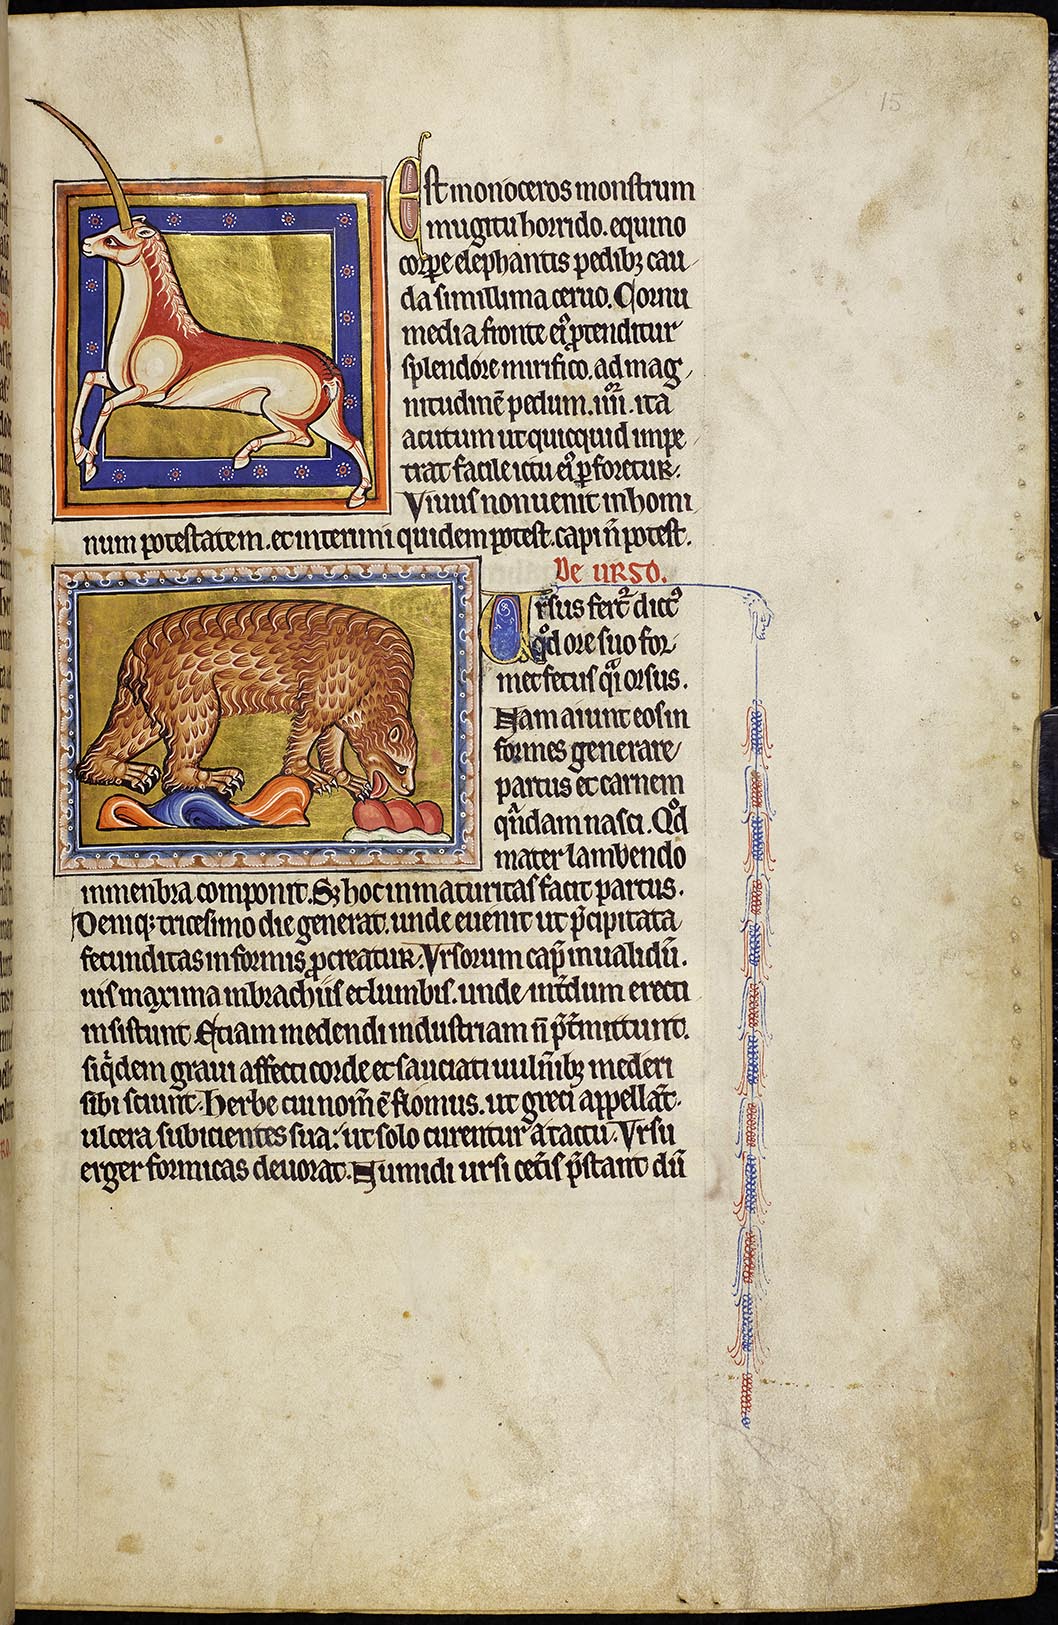 15
Est monoceros monstrum
mugitu horrido. equino
corpe elephantis pedibꝫ cau
da simillima ceruo. Cornu
media fronte eiꝰ ꝓtenditur
splendore mirifico. ad mag
nitudinē pedum .iiiiorͬ. ita
acutum ut quicquid impe
trat facile ictu eiꝰ ꝑforetur.
Viuus non uenit in homi
num potestatem. et interimi quidem potest. capi n̄ potest.
De urso.
Ursus fert᷑ dictꝰ
qͦd ore suo for
met fetus qͣi orsus.
Nam aiunt eos in
formes generare
partus et carnem
qn̄dam nasci. Qͦd
mater lambendo
in menbra componit. Sꝫ hoc inmaturitas facit partus.
Deniqꝫ tricesimo die generat. unde euenit ut p̄cipitata
fecunditas informis ꝓcreatur. Vrsorum cap̄ inualidū.
uis maxima in brachiis et lumbis. unde int̄dum erecti
insistunt. Etiam medendi industriam n̄ p̄t̄mittunt.
siqͥdem graui affecti corde et sauciati uuln̄ibꝫ mederi
sibi sciunt. Herbe cui nom̄ ē flomus. ut greci appellāt.
ulcera subicientes sua: ut solo curentur atactu. Vrsu
erger formicas deuorat. Numidi ursi cet̄is p̄stant dū